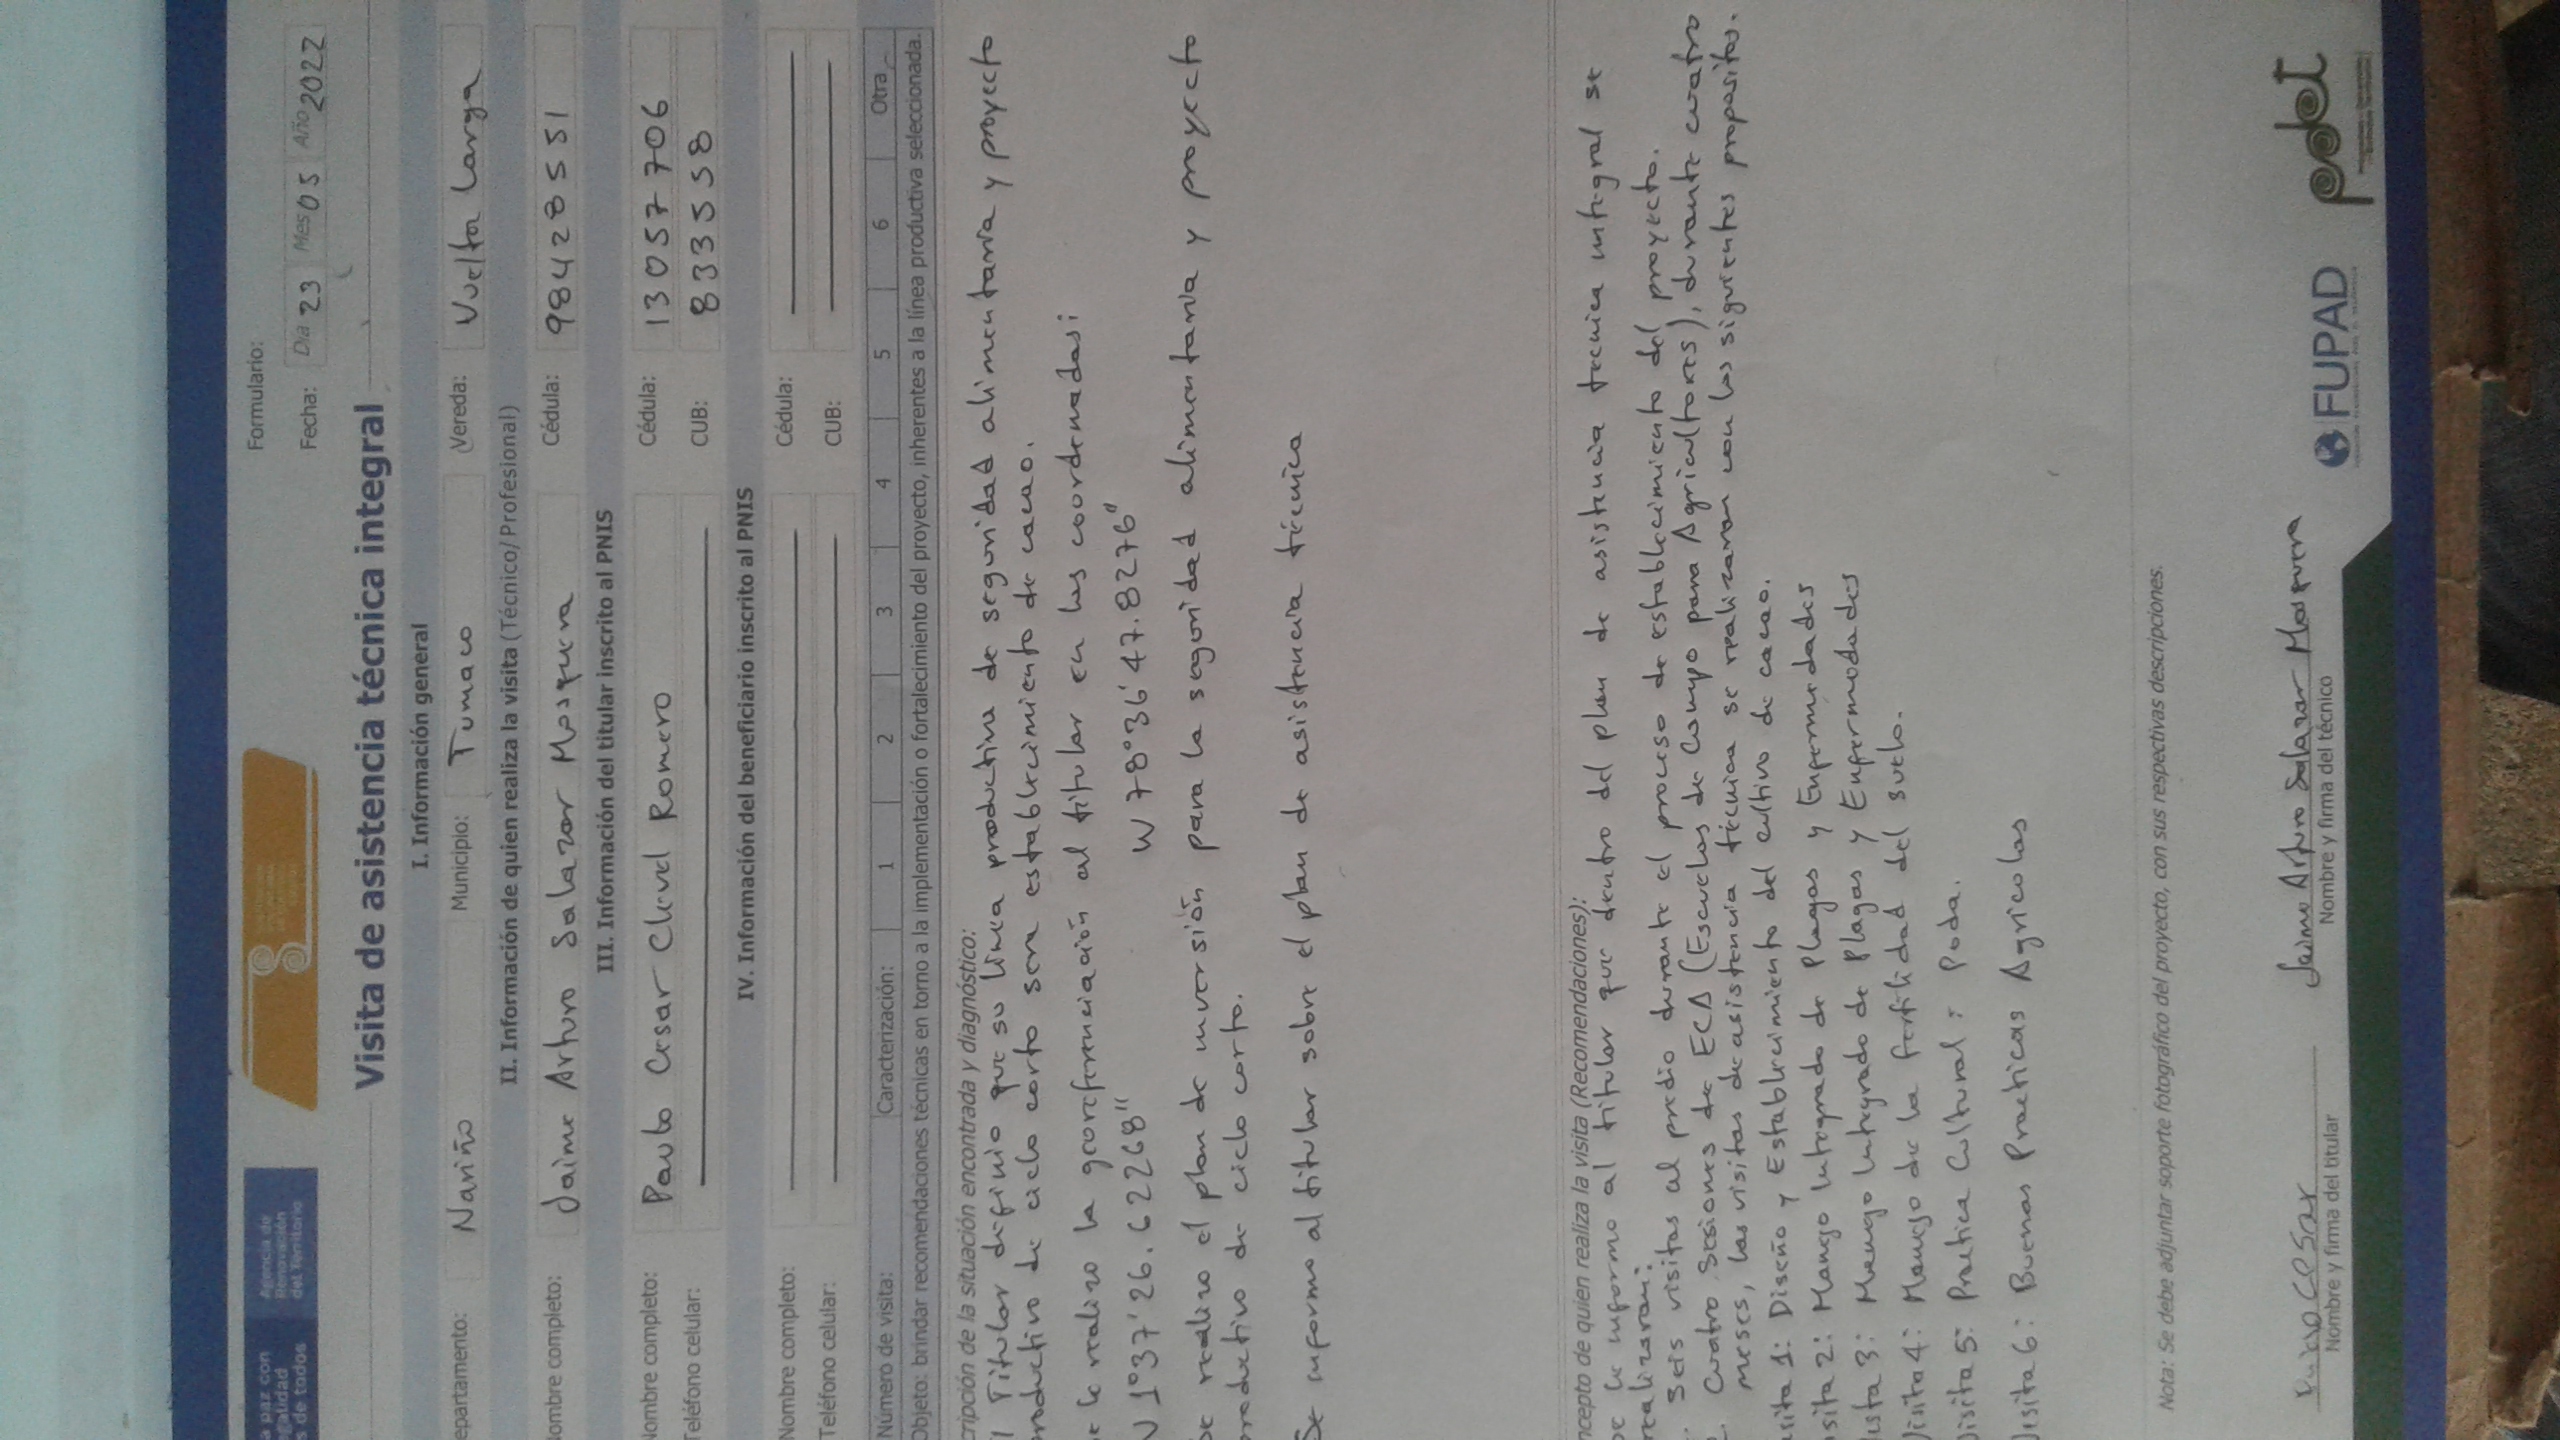 Formulario:
a paz con
galidad
s de todos
Agencia de
Renovación
del Territorio
Fecha: Día 23 Mes 05 Año 2022
Visita de asistencia técnica integral
I. Información general
epartamento: Nariño Municipio: Tumaco Vereda: Vuelta Larga
II. Información de quien realiza la visita (Técnico/Profesional)
ombre completo: Jaime Arturo Salazar Mosquera Cédula: 98428551
III. Información del titular inscrito al PNIS
Nombre completo: Paulo Cesar Clevel Romero Cédula: 13057706
Teléfono celular: CUB: 833558
IV. Información del beneficiario inscrito al PNIS
Nombre completo: Cédula:
Teléfono celular: CUB:
Número de visita: Caracterización: 1 2 3 4 5 6 Otra
Objeto: brindar recomendaciones técnicas en torno a la implementación o fortalecimiento del proyecto, inherentes a la línea productiva seleccionada.
cripción de la situación encontrada y diagnóstico:
l Titular definio que su linea productiva de seguridad alimentaria y proyecto
productivo de ciclo corto sera establecimiento de cacao.
e le realizo la georeferenciación al titular en las coordenadas:
N 1°37'26.62268" W 78°36'47.8276"
Se realizo el plan de inversión para la seguridad alimentaria y proyecto
productivo de ciclo corto.
Se informo al titular sobre el plan de asistencia técnica
ncepto de quien realiza la visita (Recomendaciones):
se le informo al titular que dentro del plan de asistencia tecnica integral se
realizaran:
. Seis visitas al predio durante el proceso de establecimiento del proyecto.
. Cuatro Sesiones de ECA (Escuelas de Campo para Agricultores), durante cuatro
meses, las visitas de asistencia técnica se realizaran con los siguientes propositos.
isita 1: Diseño y Establecimiento del cultivo de cacao.
isita 2: Manejo Integrado de Plagas y Enfermedades
isita 3: Manejo Integrado de Plagas y Enfermedades
Visita 4: Manejo de la fertilidad del suelo.
Visita 5: Practica Cultural: Poda.
Visita 6: Buenas Practicas Agricolas
Nota: Se debe adjuntar soporte fotográfico del proyecto, con sus respectivas descripciones.
CeSar
Nombre y firma del titular
Jaime Arturo Salazar Mosquera
Nombre y firma del técnico
FUPAD
pdet